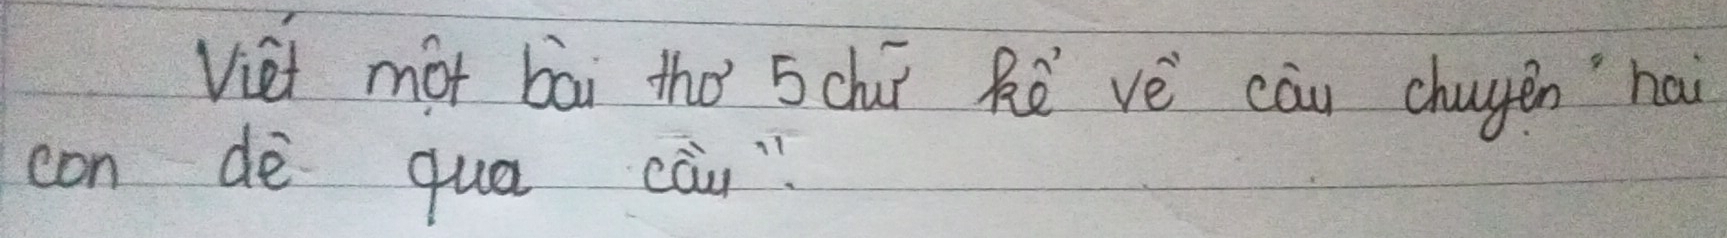 Viết một bài thơ 5 chữ kể về câu chuyện "hai
con dê qua cầu".